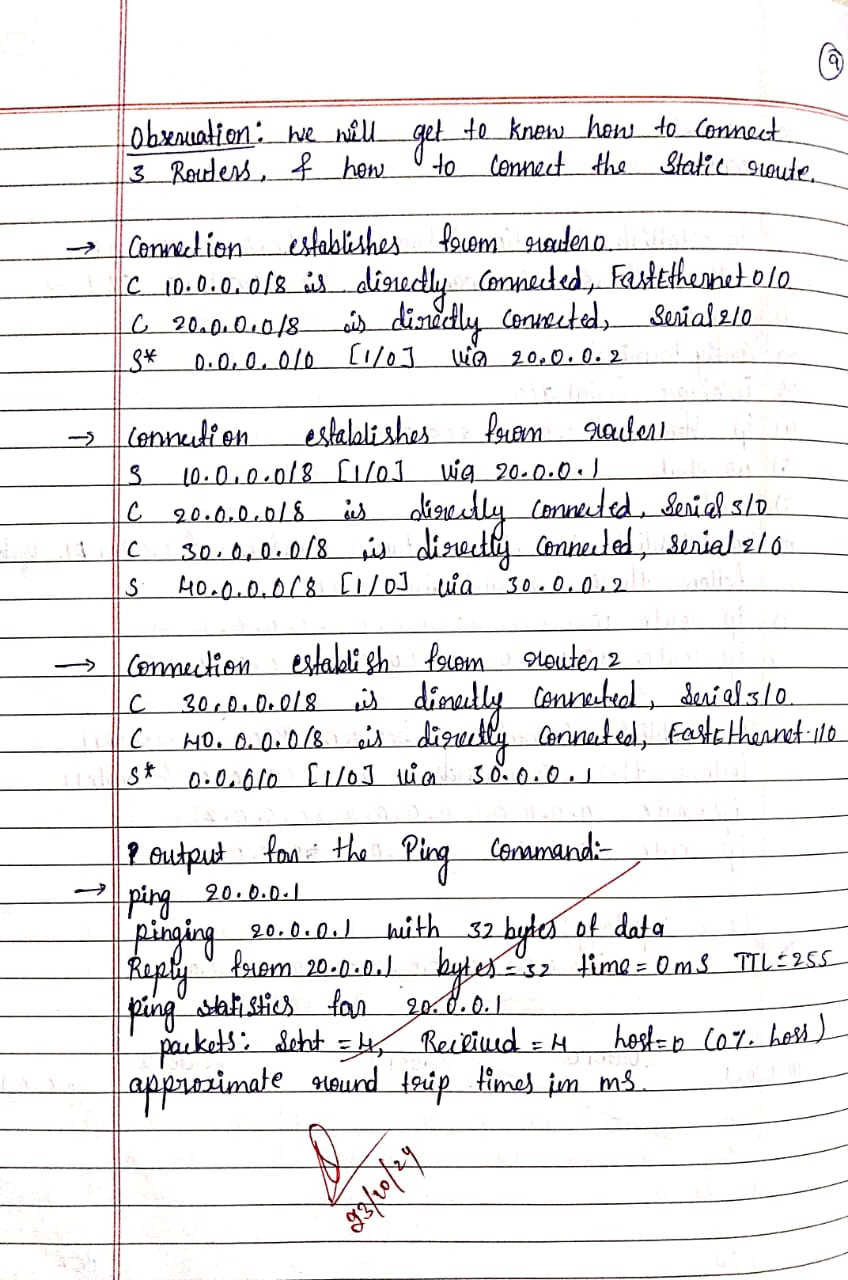 9
Observation: we will get to know how to connect
3 Routers, & how to connect the Static route.
→ Connection establishes from router0
C 10.0.0.0/8 is directly connected, FastEthernet 0/0
C 20.0.0.0/8 is directly connected, Serial 2/0
S* 0.0.0.0/0 [1/0] via 20.0.0.2
→ Connection establishes from router1
S 10.0.0.0/8 [1/0] via 20.0.0.1
C 20.0.0.0/8 is directly connected, Serial 3/0
C 30.0.0.0/8 is directly connected, Serial 2/0
S 40.0.0.0/8 [1/0] via 30.0.0.2
→ Connection establish from router 2
C 30.0.0.0/8 is directly connected, Serial 3/0
C 40.0.0.0/8 is directly connected, FastEthernet 1/0
S* 0.0.0/0 [1/0] via 30.0.0.1
output for the Ping Command:-
→ ping 20.0.0.1
pinging 20.0.0.1 with 32 bytes of data
Reply from 20.0.0.1 bytes = 32 time = 0ms TTL = 255
ping statistics for 20.0.0.1
packets: Sent = 4, Received = 4 lost = 0 (0% loss)
approximate round trip times in ms.
23/10/24